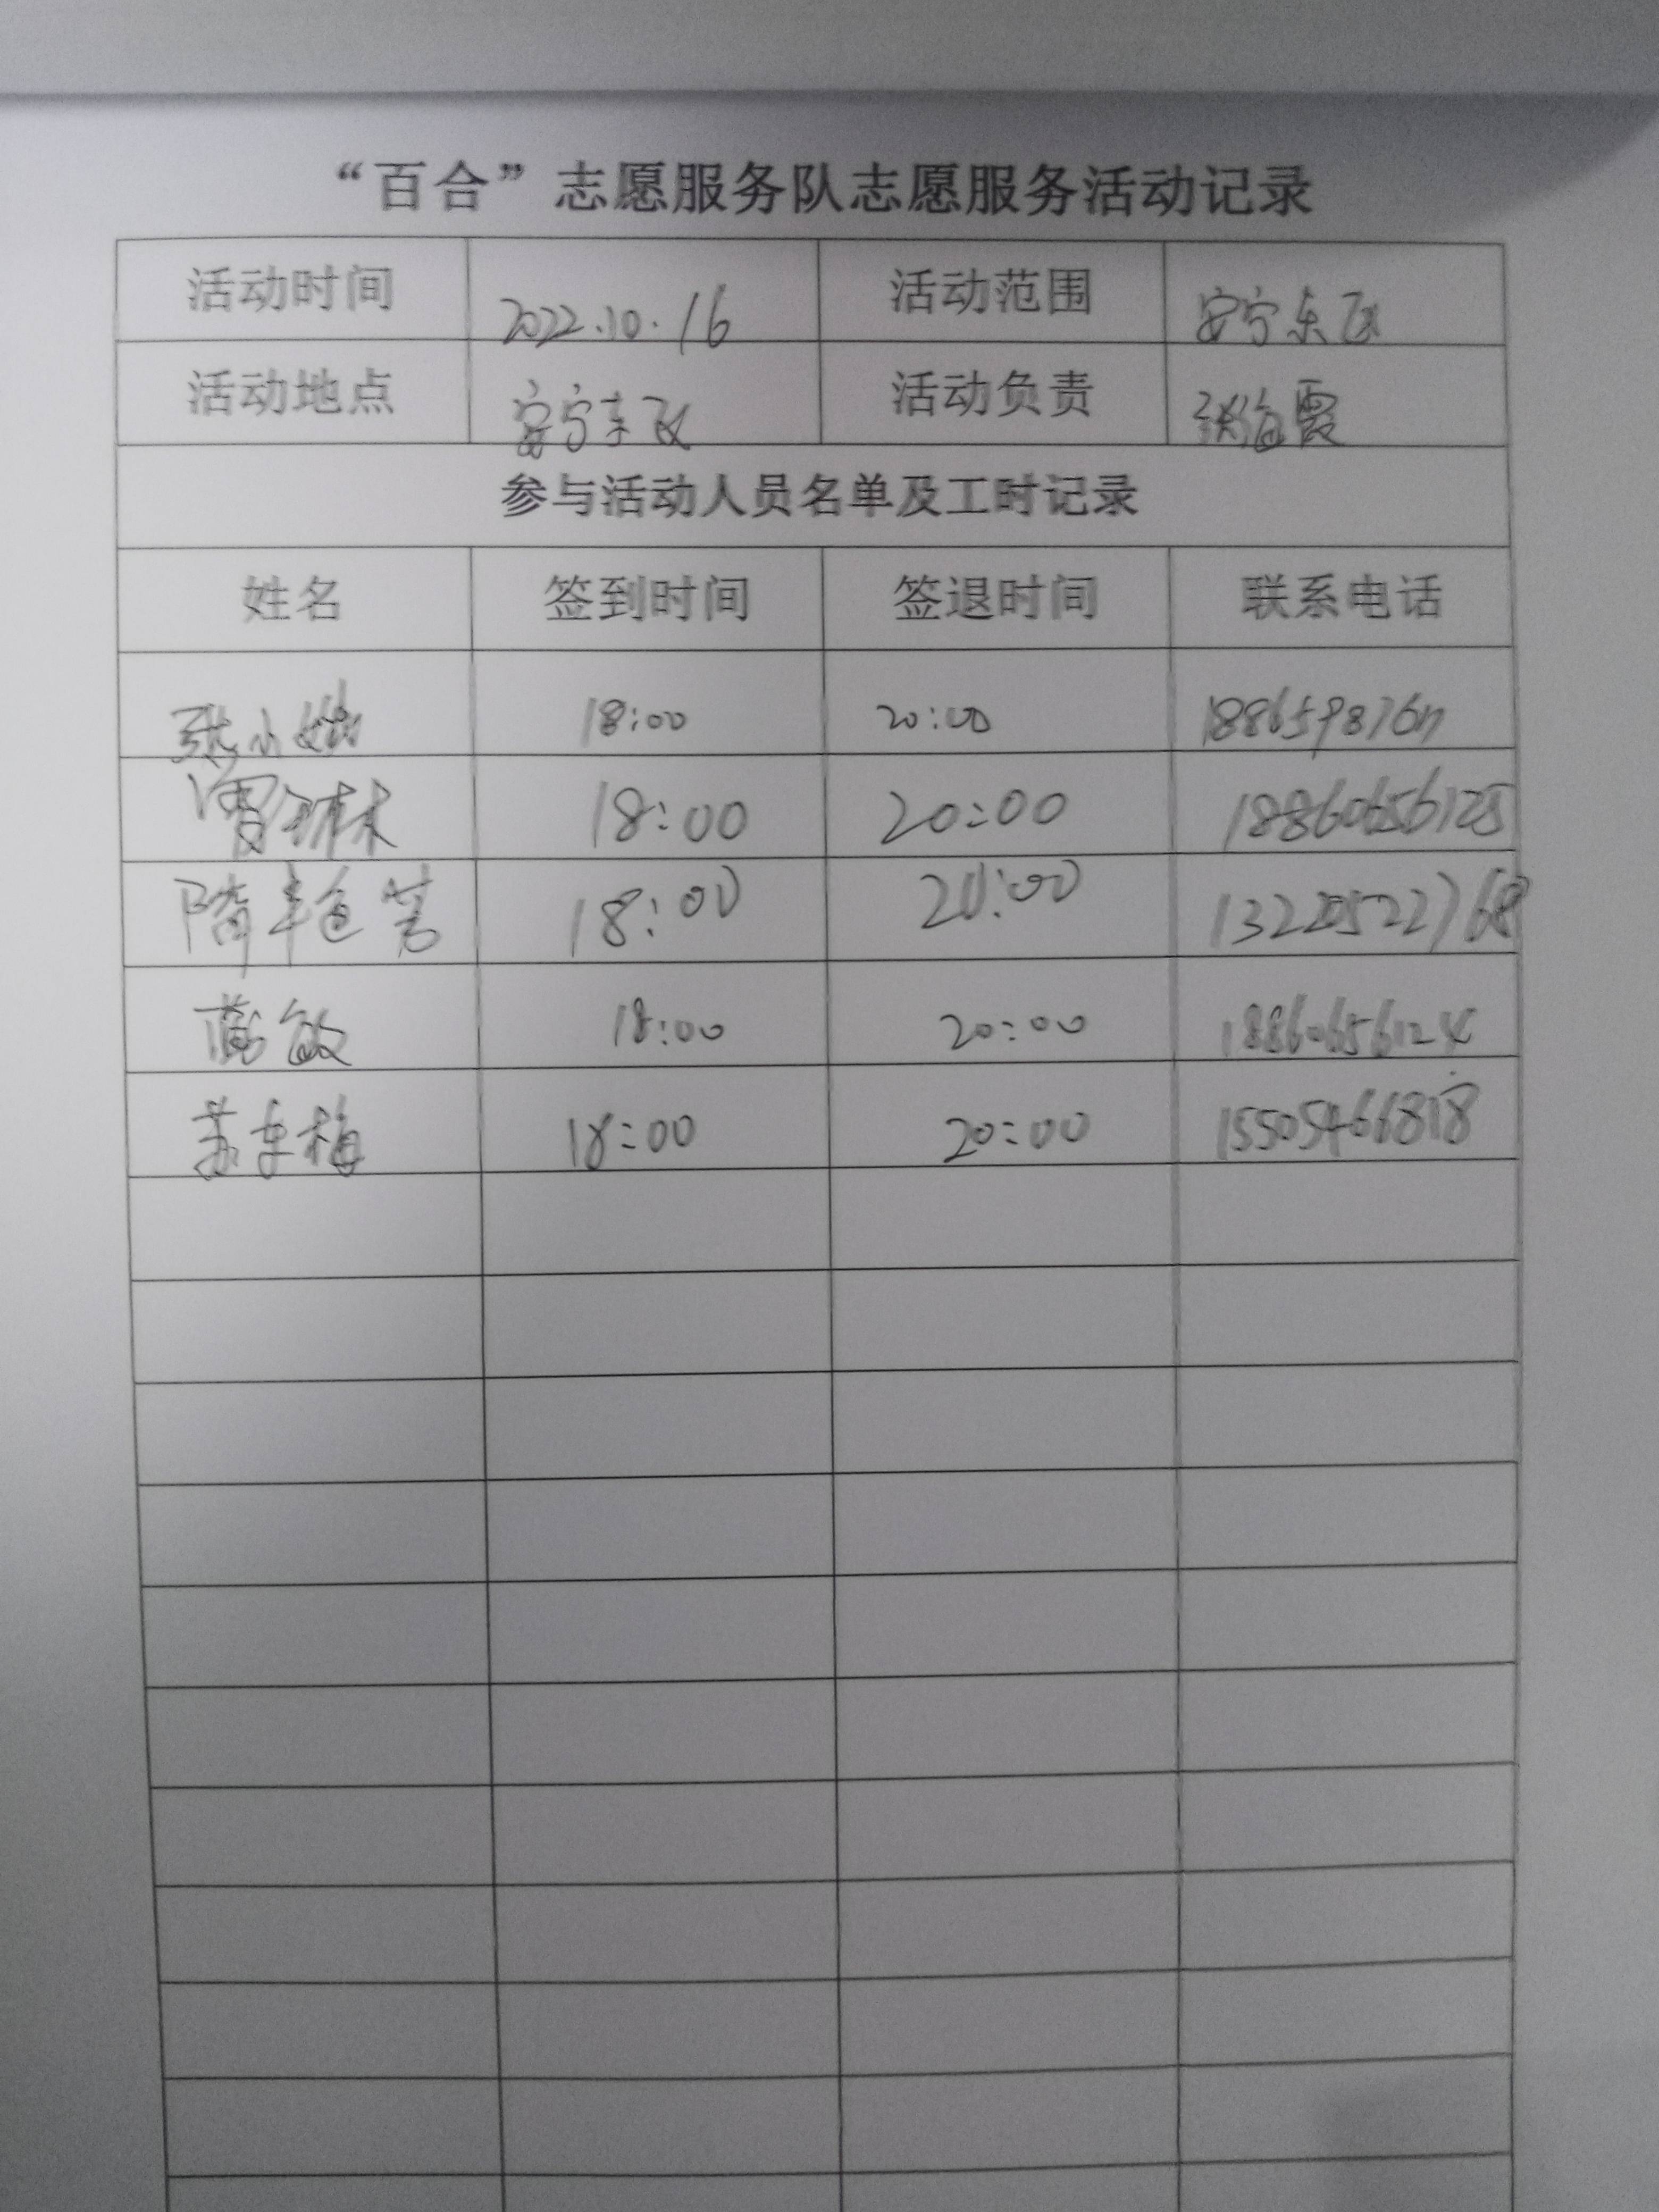 “百合”志愿服务队志愿服务活动记录
活动时间 2022.10.16 活动范围 安宁东区
活动地点 安宁东区 活动负责 张海霞
参与活动人员名单及工时记录
姓名 签到时间 签退时间 联系电话
张小 18:00 20:00
曹琳林 18:00 20:00 18860656125
隋 18:00 20:00 13220522768
敏 18:00 20:00 18860656124
苏东梅 18:00 20:00 15505466818